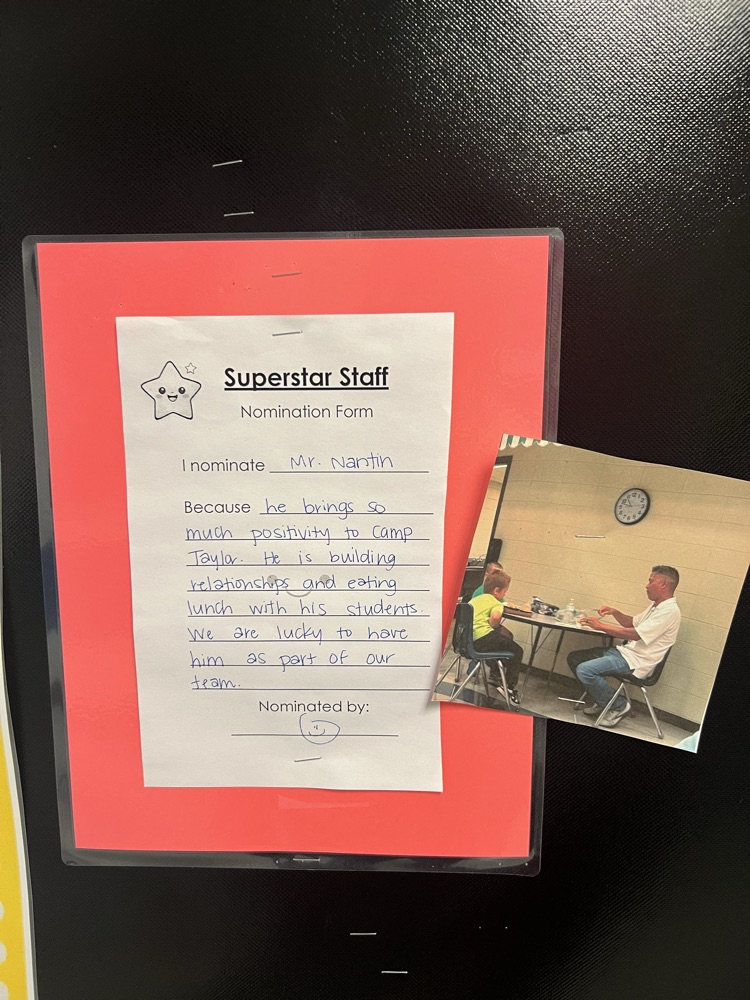 Superstar Staff
Nomination Form
I nominate Mr. Nantin
Because he brings so
much positivity to Camp
Taylor. He is building
relationships and eating
lunch with his students.
We are lucky to have
him as part of our
team.
Nominated by: